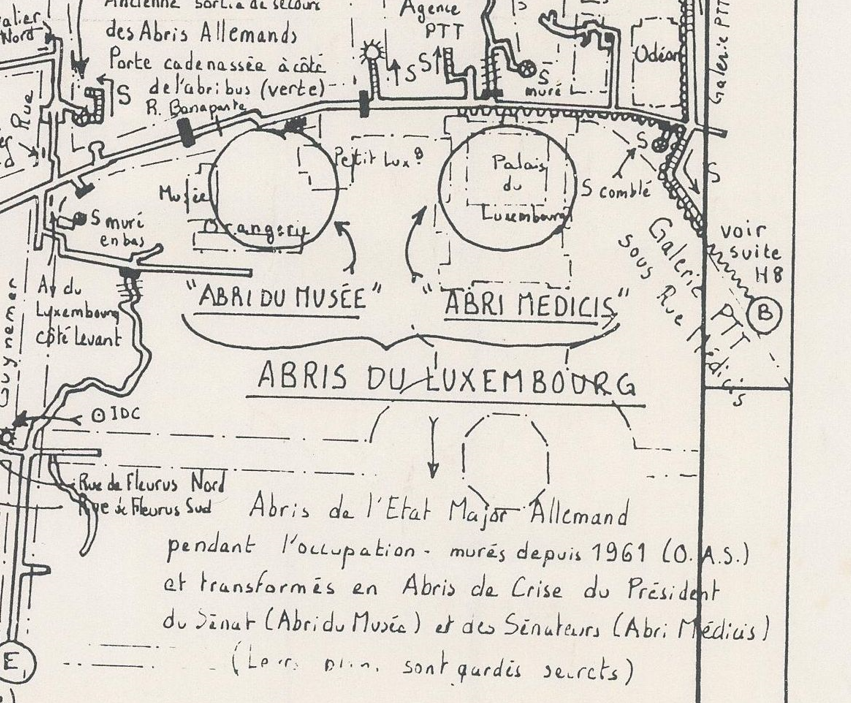 Ancienne sortie de secours
des Abris Allemands
Porte cadenassée à côté
de l'abribus (verte)
R. Bonaparte
Nord
Rue
S
Agence
PTT
S
S
S
muré
Odéon
Galerie PTT
Musée
Orangerie
Petit Luxg
Palais
du
Luxembourg
S
S comblé
S
S muré
en bas
Galerie PTT
sous Rue Médicis
voir
suite
H8
B
Av du
Luxembourg
côté Levant
Guynemer
"ABRI DU MUSÉE"
"ABRI MEDICIS"
ABRIS DU LUXEMBOURG
IDC
Rue de Fleurus Nord
Rue de Fleurus Sud
Abris de l'Etat Major Allemand
pendant l'occupation - murés depuis 1961 (O.A.S.)
et transformés en Abris de Crise du Président
du Sénat (Abri du Musée) et des Sénateurs (Abri Médicis)
(Leurs sont gardés secrets)
E